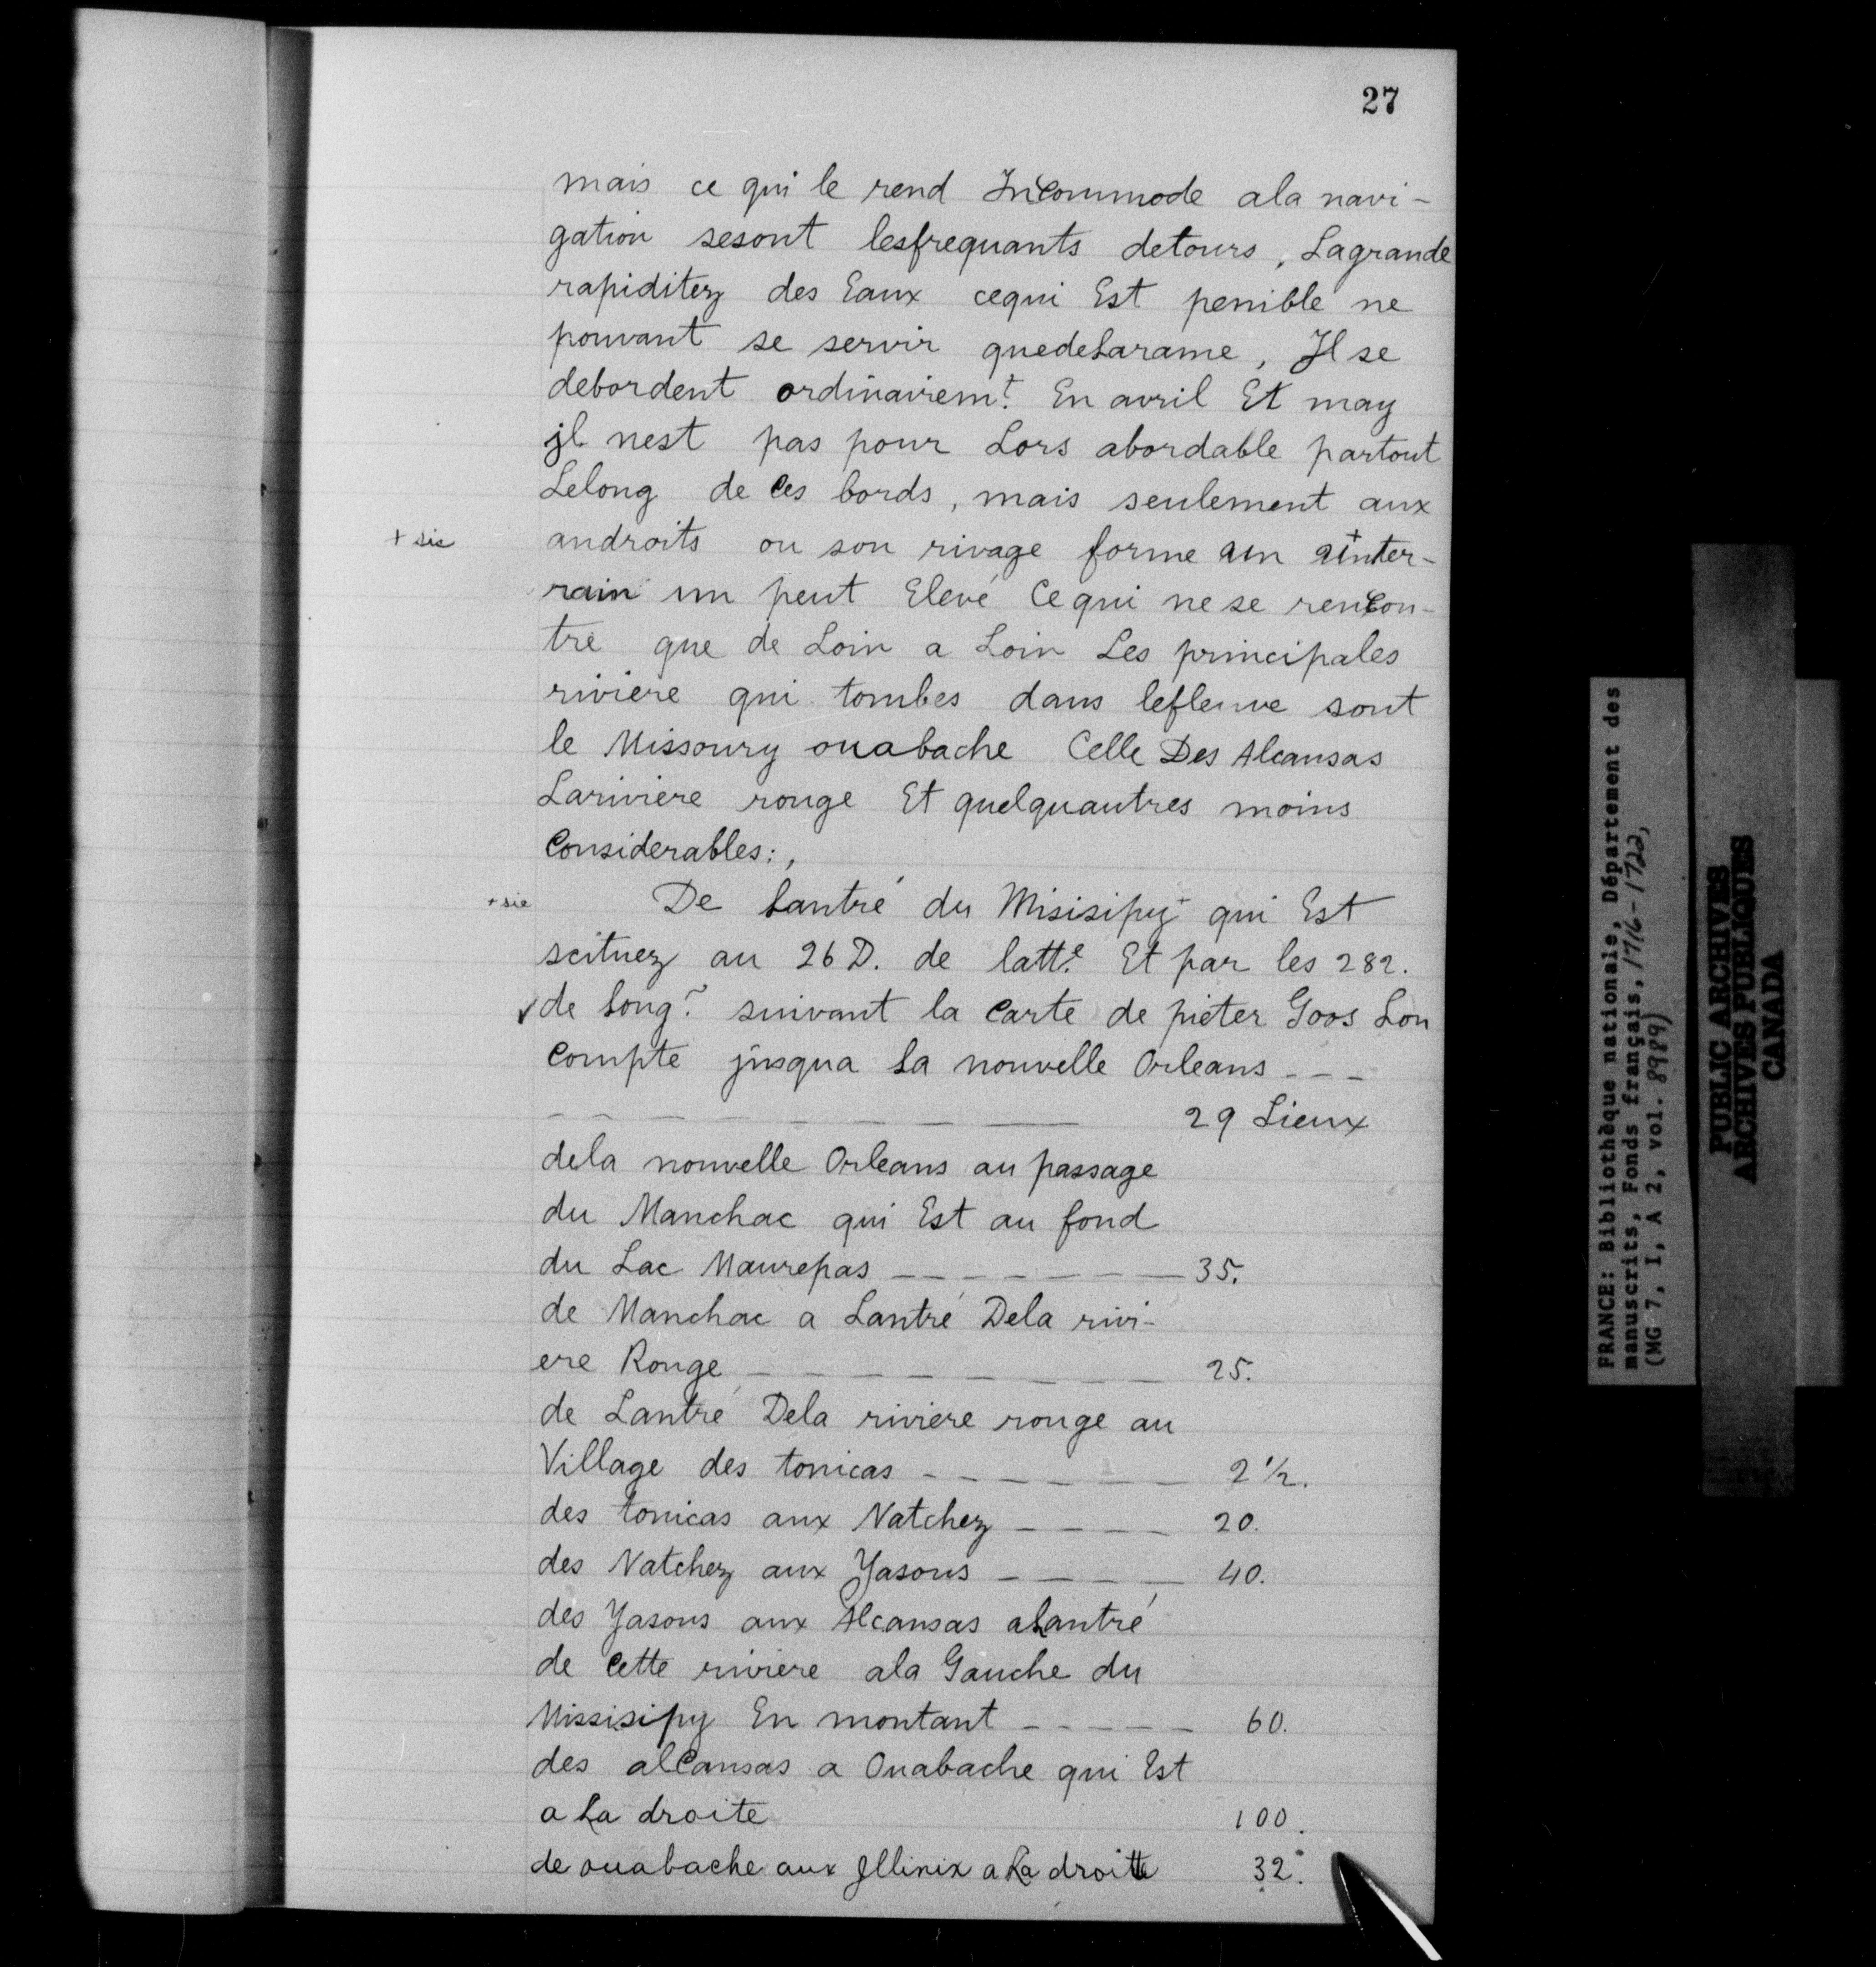 27
mais ce qui le rend Incommode ala navi-
gation sesont lesfrequants detours, Lagrande
rapiditez des Eaux cequi Est penible ne
pouvant se servir quedelarame, Il se
debordent ordinairemt. En avril Et may
jl nest pas pour Lors abordable partout
Lelong de Ces bords, mais seulement aux
+ sic
androits ou son rivage forme un ainter+-
rain un peut Elevé Cequi ne se rencon-
tre que de Loin a Loin Les principales
riviere qui tombes dans lefleuve sont
le Missoury ouabache Celle Des Alcansas
Lariviere rouge Et quelquautres moins
Considerables:,
+ sic
De Lantré du Misisipy+ qui Est
scituez au 26 D. de latte. Et par les 282.
✓ de Long~. suivant la Carte de pieter Goos Lon
Compte jusqua La nouvelle Orleans - - -
- - - - - - - - 29 Lieux
dela nouvelle Orleans au passage
du Manchac qui Est au fond
du Lac Maurepas - - - - - - - 35.
de Manchac a Lantré Dela rivi-
ere Rouge - - - - - - - - - 25.
de Lantré Dela riviere rouge au
Village des tonicas - - - - - - - 2 1/2.
des tonicas aux Natchez - - - - 20.
des Natchez aux Yasous - - - - 40.
des Yasous aux Alcansas aLantré
de Cette riviere ala Gauche du
Missisipy En montant - - - - - 60.
des alCansas a Ouabache qui Est
a La droite 100.
de ouabache aux Illinix a La droitte 32.
FRANCE: Bibliothèque nationale, Département des
manuscrits, Fonds français, 1716-1722,
(MG 7, I, A 2, vol. 8989)
PUBLIC ARCHIVES
ARCHIVES PUBLIQUES
CANADA